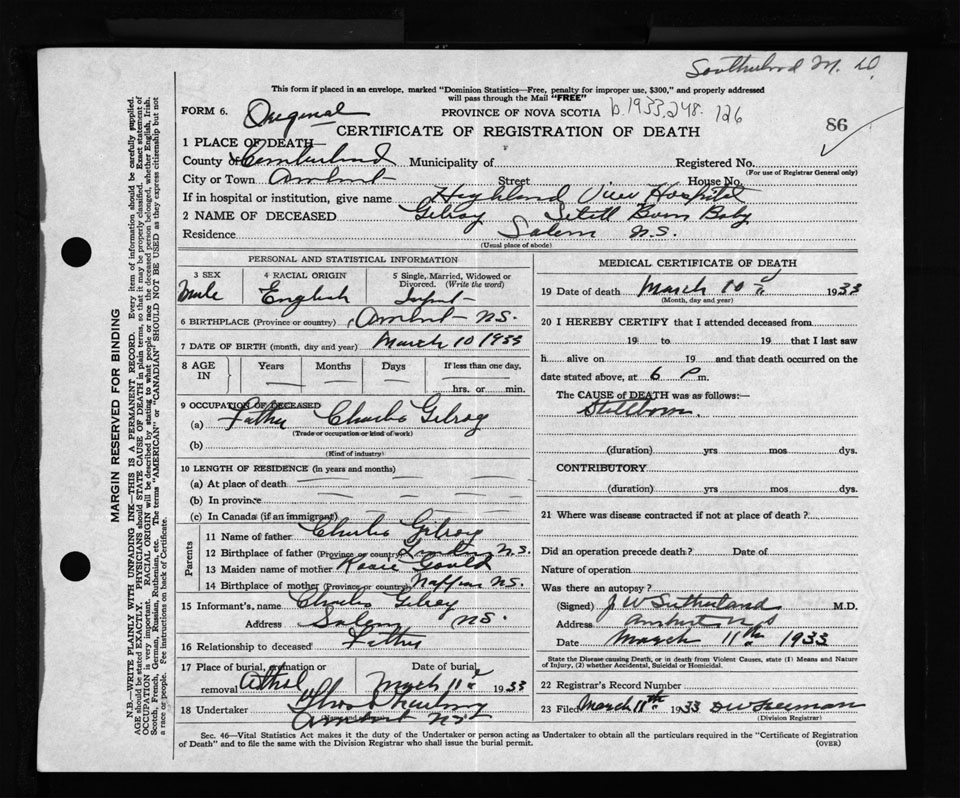 Sutherland M.D.
This form if placed in an envelope, marked "Dominion Statistics—Free, penalty for improper use, $300," and properly addressed
will pass through the Mail "FREE"
FORM 6. Original PROVINCE OF NOVA SCOTIA b.1933.248.126
CERTIFICATE OF REGISTRATION OF DEATH 86
1 PLACE OF DEATH—
County of Cumberland Municipality of Registered No.
(For use of Registrar General only)
City or Town Amherst Street House No.
If in hospital or institution, give name Highland View Hospital
2 NAME OF DECEASED Gilroy Still Born Baby
Residence Salem N.S.
(Usual place of abode)
PERSONAL AND STATISTICAL INFORMATION
3 SEX 4 RACIAL ORIGIN 5 Single, Married, Widowed or Divorced. (Write the word)
Male English Infant
6 BIRTHPLACE (Province or country) Amherst N.S.
7 DATE OF BIRTH (month, day and year) March 10 1933
8 AGE IN Years Months Days If less than one day,
hrs. or min.
9 OCCUPATION OF DECEASED
(a) Father Charlie Gilroy
(Trade or occupation or kind of work)
(b)
(Kind of industry)
10 LENGTH OF RESIDENCE (in years and months)
(a) At place of death
(b) In province
(c) In Canada (if an immigrant)
Parents
11 Name of father Charlie Gilroy
12 Birthplace of father (Province or country) N.S.
13 Maiden name of mother Gould
14 Birthplace of mother (Province or country) Nappan N.S.
15 Informant's, name Charlie Gilroy
Address Salem N.S.
16 Relationship to deceased Father
17 Place of burial, cremation or removal Athol Date of burial March 11 1933
18 Undertaker
Amherst N.S.
MEDICAL CERTIFICATE OF DEATH
19 Date of death March 10 1933
(Month, day and year)
20 I HEREBY CERTIFY that I attended deceased from
19 to 19 that I last saw
h alive on 19 and that death occurred on the
date stated above, at 6 P m.
The CAUSE of DEATH was as follows:—
Stillborn.
(duration) yrs mos dys.
CONTRIBUTORY
(duration) yrs mos dys.
21 Where was disease contracted if not at place of death?
Did an operation precede death? Date of
Nature of operation
Was there an autopsy?
(Signed) J W Sutherland M.D.
Address Amherst N S
Date March 11th 1933
State the Disease causing Death, or in death from Violent Causes, state (1) Means and Nature
of Injury, (2) whether Accidental, Suicidal or Homicidal.
22 Registrar's Record Number
23 Filed March 11th 1933 D W Freeman
(Division Registrar)
Sec. 46—Vital Statistics Act makes it the duty of the Undertaker or person acting as Undertaker to obtain all the particulars required in the "Certificate of Registration
of Death" and to file the same with the Division Registrar who shall issue the burial permit. (OVER)
MARGIN RESERVED FOR BINDING
N.B.—WRITE PLAINLY WITH UNFADING INK—THIS IS A PERMANENT RECORD. Every item of information should be carefully supplied.
AGE should be stated EXACTLY. PHYSICIANS should STATE CAUSE OF DEATH in plain terms, so that it may be properly classified. Exact statement of
OCCUPATION is very important. RACIAL ORIGIN will be described by stating to what people or race the deceased person belonged, whether English, Irish,
Scotch, French, German, Russian, Ruthenian, etc. The terms "AMERICAN" or "CANADIAN" SHOULD NOT BE USED as they express citizenship but not
a race or people. See instructions on back of Certificate.